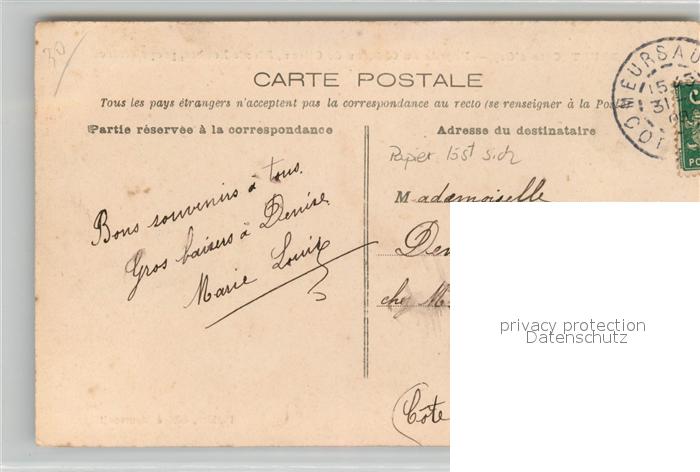 30
CARTE POSTALE
Tous les pays étrangers n'acceptent pas la correspondance au recto (se renseigner à la Poste
Partie réservée à la correspondance
Adresse du destinataire
Papier löst sich
Bons souvenirs à tous.
Gros baisers à Denise.
Marie Louise
Mademoiselle
Den
chez M
(Côte
MEURSAU
15
31
COT
PO
privacy protection
Datenschutz